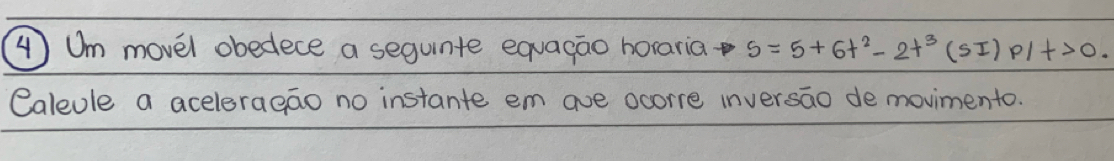 4) Um movél obedece a seguinte equação horaria → S = 5 + 6t² - 2t³ (SI) p/ t > 0.
Calcule a aceleração no instante em que ocorre inversão de movimento.